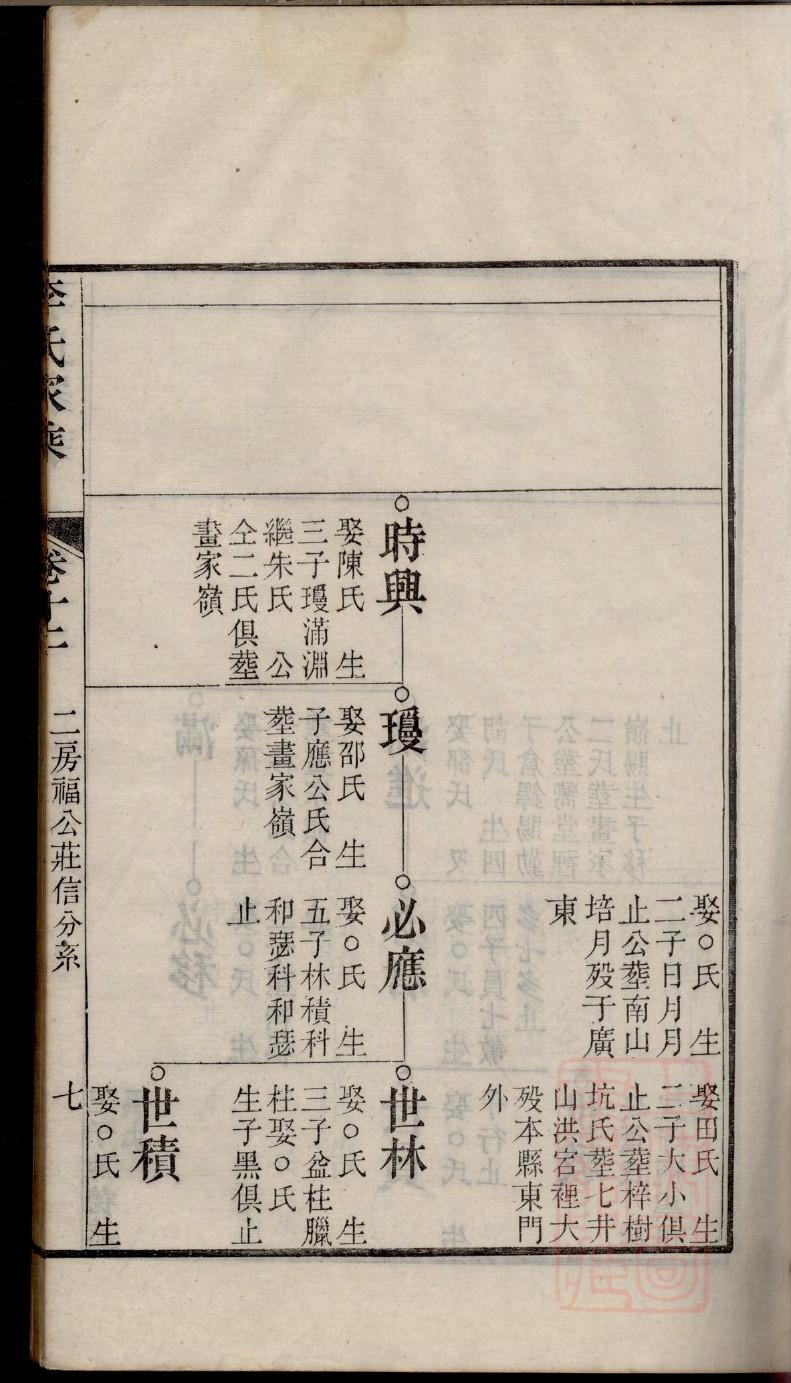 娶○氏　生
二子日月月
止公塟南山
培月歿于廣
東
娶田氏　生
二子大小俱
止公塟梓樹
坑氏塟七井
山洪宮裡大
歿本縣東門
外
時興
娶陳氏　生
三子璦滿淵
繼朱氏　公
仝二氏俱塟
畫家嶺
璦
娶邵氏　生
子應公氏合
塟畫家嶺
必應
娶○氏　生
五子林積科
和瑟科和瑟
止
世林
娶○氏　生
三子盆柱臘
柱娶○氏
生子黑俱止
世積
娶○氏　生
李氏家乘　卷十二　二房福公莊信分系　七